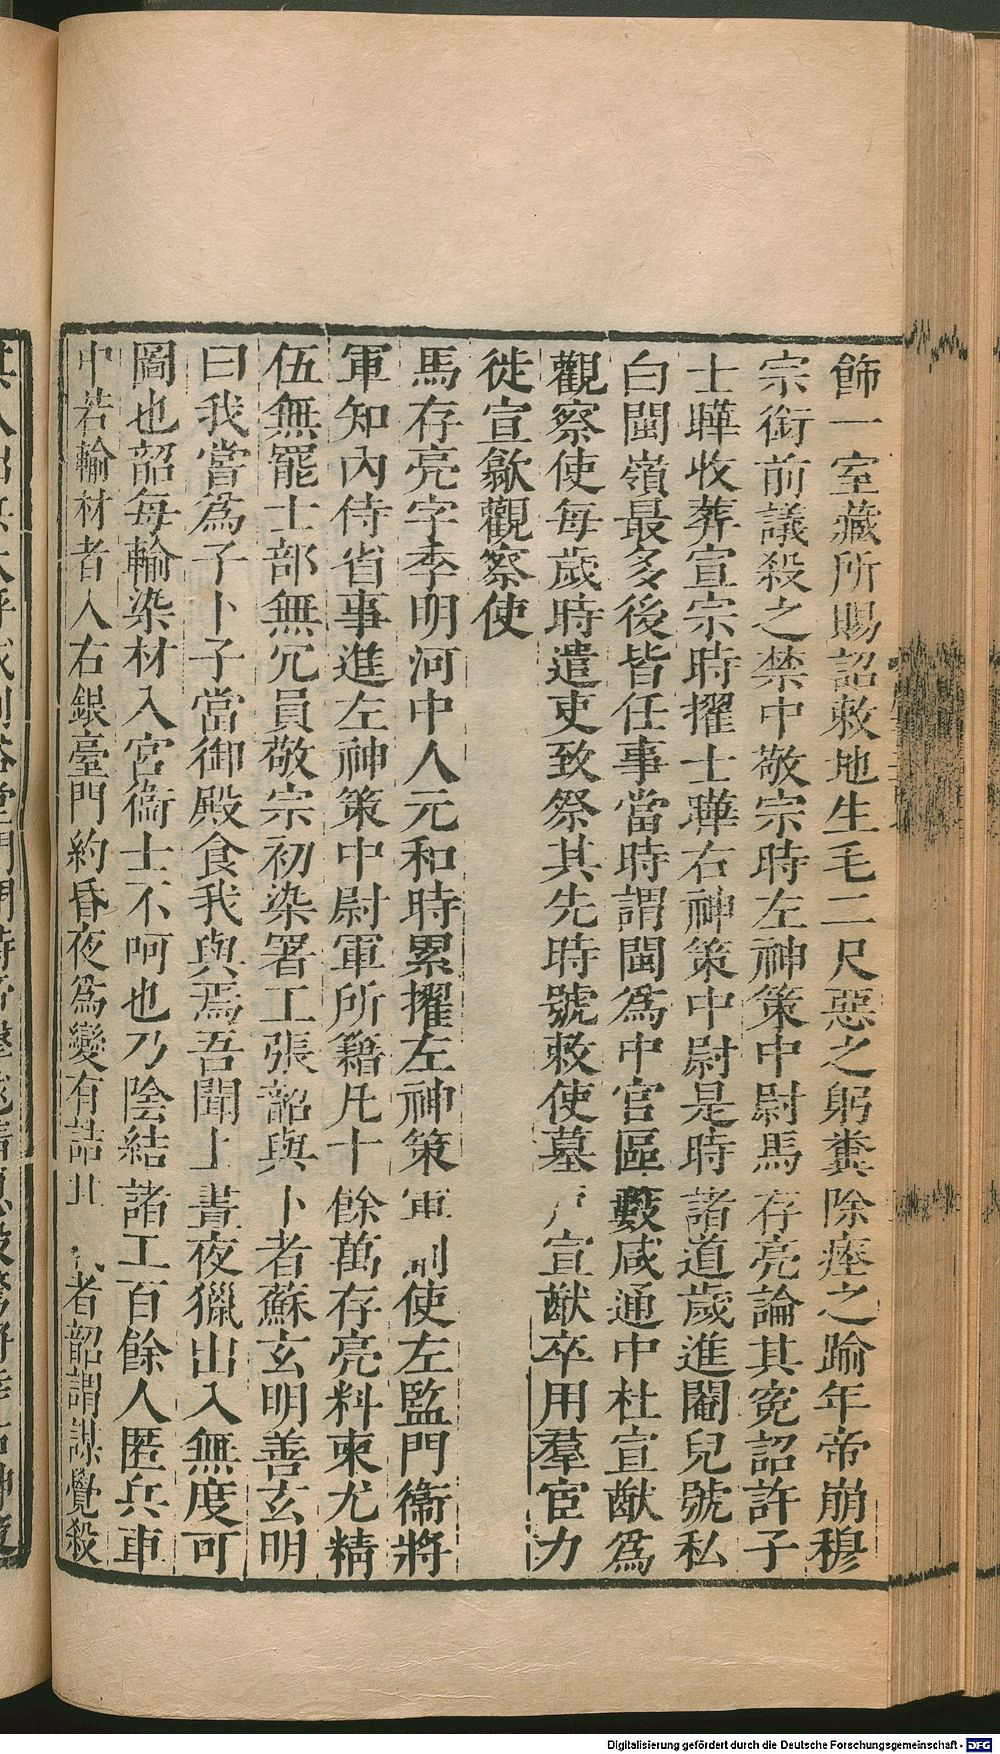 飾一室藏所賜詔敕地生毛二尺惡之躬糞除瘞之踰年帝崩穆
宗銜前議殺之禁中敬宗時左神策中尉馬存亮論其冤詔許子
士曄收葬宣宗時擢士曄右神策中尉是時諸道歲進閹兒號私
白閩嶺最多後皆任事當時謂閩爲中官區藪咸通中杜宣猷爲
觀察使每歲時遣吏致祭其先時號敕使墓戶宣猷卒用羣宦力
徙宣歙觀察使
馬存亮字季明河中人元和時累擢左神策軍副使左監門衞將
軍知內侍省事進左神策中尉軍所籍凡十餘萬存亮料柬尤精
伍無罷士部無宂員敬宗初染署工張韶與卜者蘇玄明善玄明
曰我嘗爲子卜子當御殿食我與焉吾聞上晝夜獵出入無度可
圖也韶每輸染材入宮衞士不呵也乃陰結諸工百餘人匿兵車
中若輸材者入右銀臺門約昏夜爲變有詰其載者韶謂謀覺殺
Digitalisierung gefördert durch die Deutsche Forschungsgemeinschaft - DFG